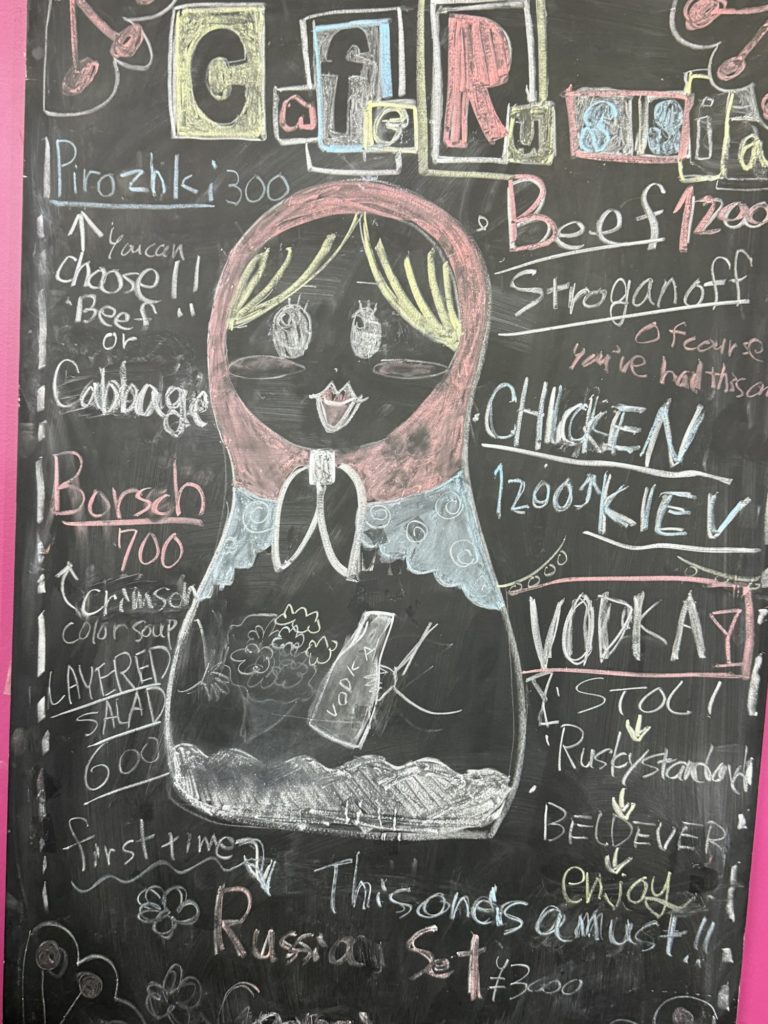 Cafe Russia
Pirozhki 300
You can
choose!!
"Beef"
or
Cabbage
Borsch
700
crimson
color soup
LAYERED
SALAD
600
Beef 1200
Stroganoff
Of course
you've had this on
CHICKEN
1200 KIEV
VODKA
VODKA
STOLI
Ruskystandard
BELDEVER
enjoy
first time
This one is a must!!
Russian Set
¥3000